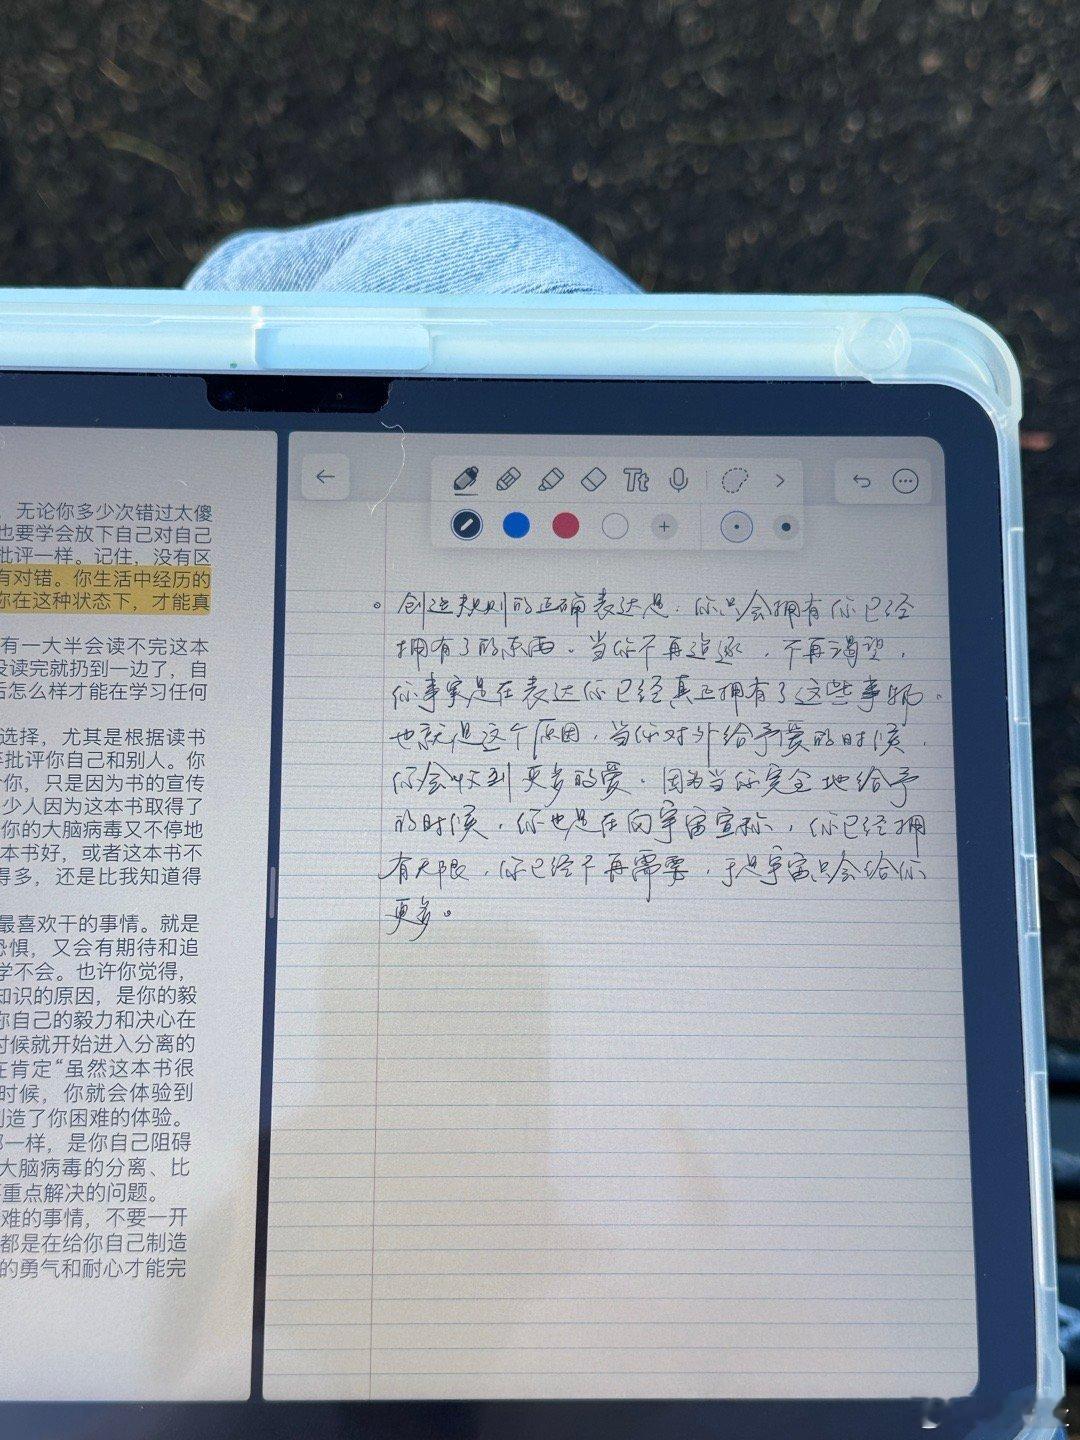 ，无论你多少次错过太傻
也要学会放下自己对自己
批评一样。记住，没有区
有对错。你生活中经历的
你在这种状态下，才能真
有一大半会读不完这本
没读完就扔到一边了，自
后怎么样才能在学习任何
选择，尤其是根据读书
批评你自己和别人。你
你，只是因为书的宣传
少人因为这本书取得了
你的大脑病毒又不停地
本书好，或者这本书不
得多，还是比我知道得
最喜欢干的事情。就是
恐惧，又会有期待和追
学不会。也许你觉得，
知识的原因，是你的毅
你自己的毅力和决心在
时候就开始进入分离的
在肯定“虽然这本书很
时候，你就会体验到
创造了你困难的体验。
那一样，是你自己阻碍
大脑病毒的分离、比
重点解决的问题。
难的事情，不要一开
都是在给你自己制造
的勇气和耐心才能完
Tt
创造规则的正确表达是：你只会拥有你已经
拥有了的东西。当你不再追逐，不再渴望，
你事实是在表达你已经真正拥有了这些事物。
也就是这个原因，当你对外给予爱的时候，
你会收到更多的爱。因为当你完全地给予
的时候，你也是在向宇宙宣称，你已经拥
有无限，你已经不再需要，于是宇宙只会给你
更多。